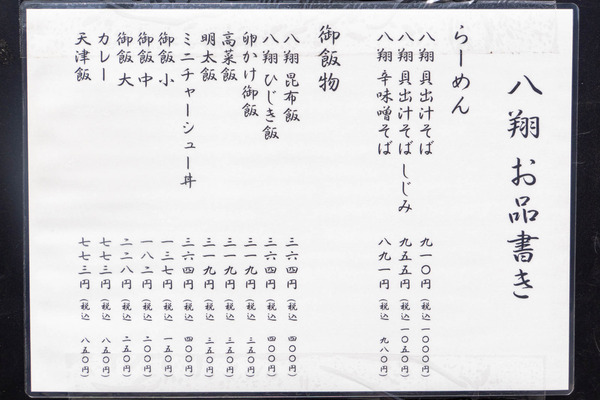 八翔 お品書き
らーめん
八翔 貝出汁そば 九一〇円 (税込 一〇〇〇円)
八翔 貝出汁そば しじみ 九五五円 (税込 一〇五〇円)
八翔 辛味噌そば 八九一円 (税込 九八〇円)
御飯物
八翔 昆布飯 三六四円 (税込 四〇〇円)
八翔 ひじき飯 三六四円 (税込 四〇〇円)
卵かけ御飯 三一九円 (税込 三五〇円)
高菜飯 三一九円 (税込 三五〇円)
明太飯 三一九円 (税込 三五〇円)
ミニチャーシュー丼 三六四円 (税込 四〇〇円)
御飯 小 一三七円 (税込 一五〇円)
御飯 中 一八二円 (税込 二〇〇円)
御飯 大 二二八円 (税込 二五〇円)
カレー 七七三円 (税込 八五〇円)
天津飯 七七三円 (税込 八五〇円)